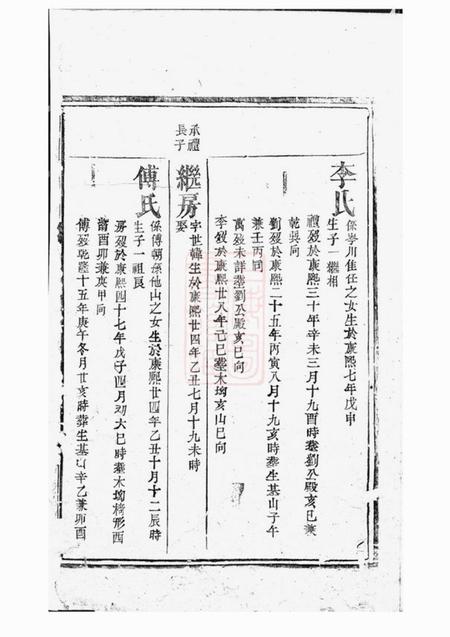 李氏
係李川佳任之女生於康熙七年戊申
生子一繼相
禮歿於康熙三十年辛未三月十九酉時葬劉公殿亥巳兼
乾吳向
劉歿於康熙二十五年丙寅八月十九亥時葬生基山子午
兼壬丙向
萬歿未詳葬劉公殿亥巳向
李歿於康熙廿八年己巳葬木坳亥山巳向
承禮
長子
繼房
字世韓生於康熙廿四年乙丑七月十九未時
娶
傅氏
係傅朝孫他山之女生於康熙廿四年乙丑十月十二辰時
生子一祖良
房歿於康熙四十七年戊子四月初六巳時葬木坳椅形酉
酉卯兼庚甲向
傅歿乾隆十五年庚午冬月廿亥時葬生基山辛乙兼卯酉